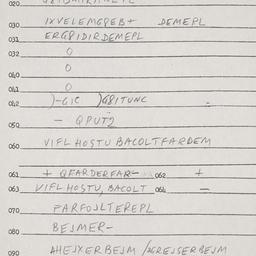 020
030 IXVELEMGPEB+ DEMEPL
031 ERGPIDIRDEMEPL
032 0
040 0
041 0
042 )-GIC )GPITUNC =
050 - QPUT2
060 VIFL HOSTU BACOLTFARDEM
061 + QFARDERFAR- 062 +
063 VIFL HOSTU, BACOLT 064 -
070 PARFOJLTEREPL
080 BEJMER-
090 AHEJXERBEJM /AGREJSERBEJM